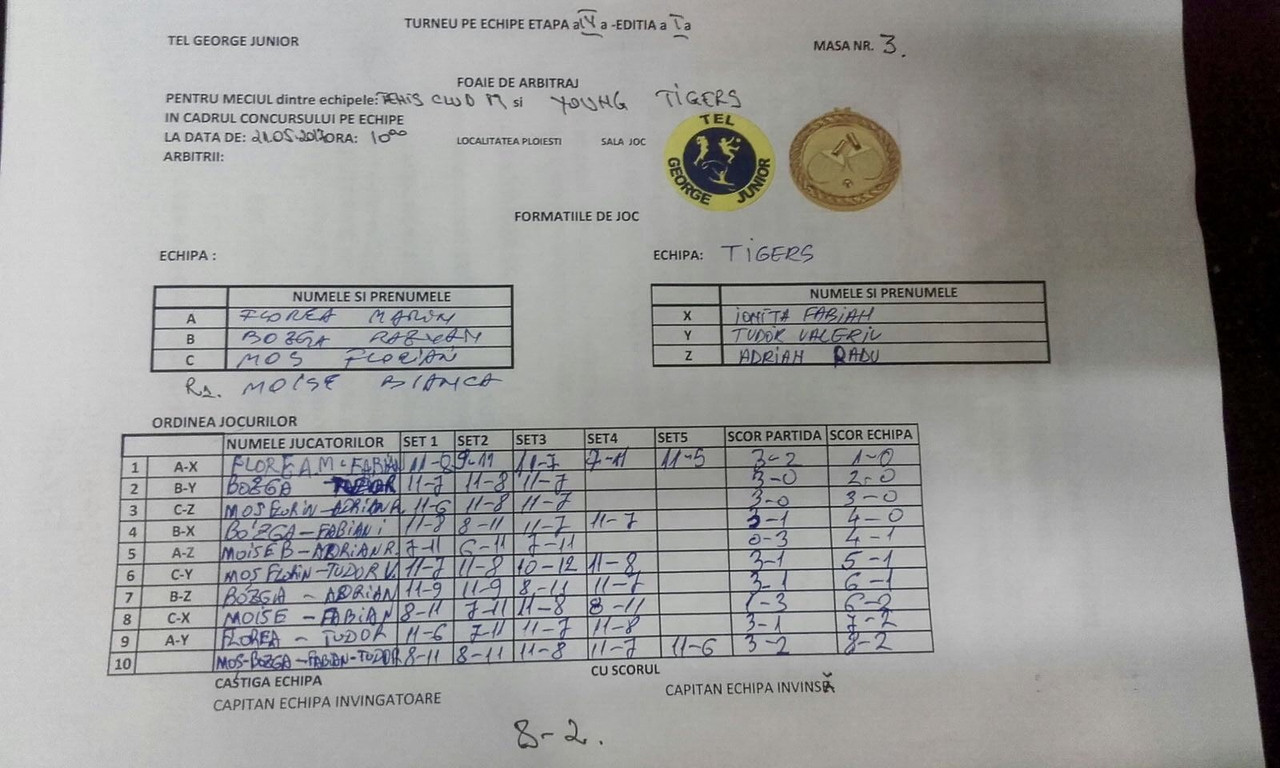 TURNEU PE ECHIPE ETAPA a IV a -EDITIA a I a
TEL GEORGE JUNIOR
MASA NR. 3.
FOAIE DE ARBITRAJ
PENTRU MECIUL dintre echipele: TENIS CLUB M si YOUNG TIGERS
IN CADRUL CONCURSULUI PE ECHIPE
LA DATA DE: 21.05.2017 ORA: 10⁰⁰ LOCALITATEA PLOIESTI SALA JOC
ARBITRII:
TEL GEORGE JUNIOR
FORMATIILE DE JOC
ECHIPA :
NUMELE SI PRENUMELE
A FLOREA MARIN
B BOZGA RAZVAN
C MOS FLORIAN
R1. MOISE BIANCA
ECHIPA: TIGERS
NUMELE SI PRENUMELE
X IONITA FABIAN
Y TUDOR VALERIU
Z ADRIAN RADU
ORDINEA JOCURILOR
NUMELE JUCATORILOR SET 1 SET2 SET3 SET4 SET5 SCOR PARTIDA SCOR ECHIPA
1 A-X FLOREA M - FABIAN 9-11 11-7 7-11 11-5 3-2 1-0
2 B-Y BOZGA TUDOR 11-7 11-8 11-7 3-0 2-0
3 C-Z MOS FLORIN-ADRIAN R 11-6 11-8 11-7 3-0 3-0
4 B-X BOZGA-FABIAN i 11-8 8-11 11-7 11-7 3-1 4-0
5 A-Z MOISE B-ADRIAN R. 7-11 6-11 7-11 0-3 4-1
6 C-Y MOS FLORIN-TUDOR V. 11-7 11-8 10-12 11-8 3-1 5-1
7 B-Z BOZGA - ADRIAN 11-9 11-9 8-11 11-7 3-1 6-1
8 C-X MOISE - FABIAN 8-11 7-11 11-8 8-11 1-3 6-2
9 A-Y FLOREA - TUDOR 11-6 7-11 11-7 11-8 3-1 7-2
10 MOS-BOZGA-FABIAN-TUDOR 8-11 8-11 11-8 11-7 11-6 3-2 8-2
CASTIGA ECHIPA CU SCORUL
CAPITAN ECHIPA INVINGATOARE CAPITAN ECHIPA INVINSĂ
8-2.